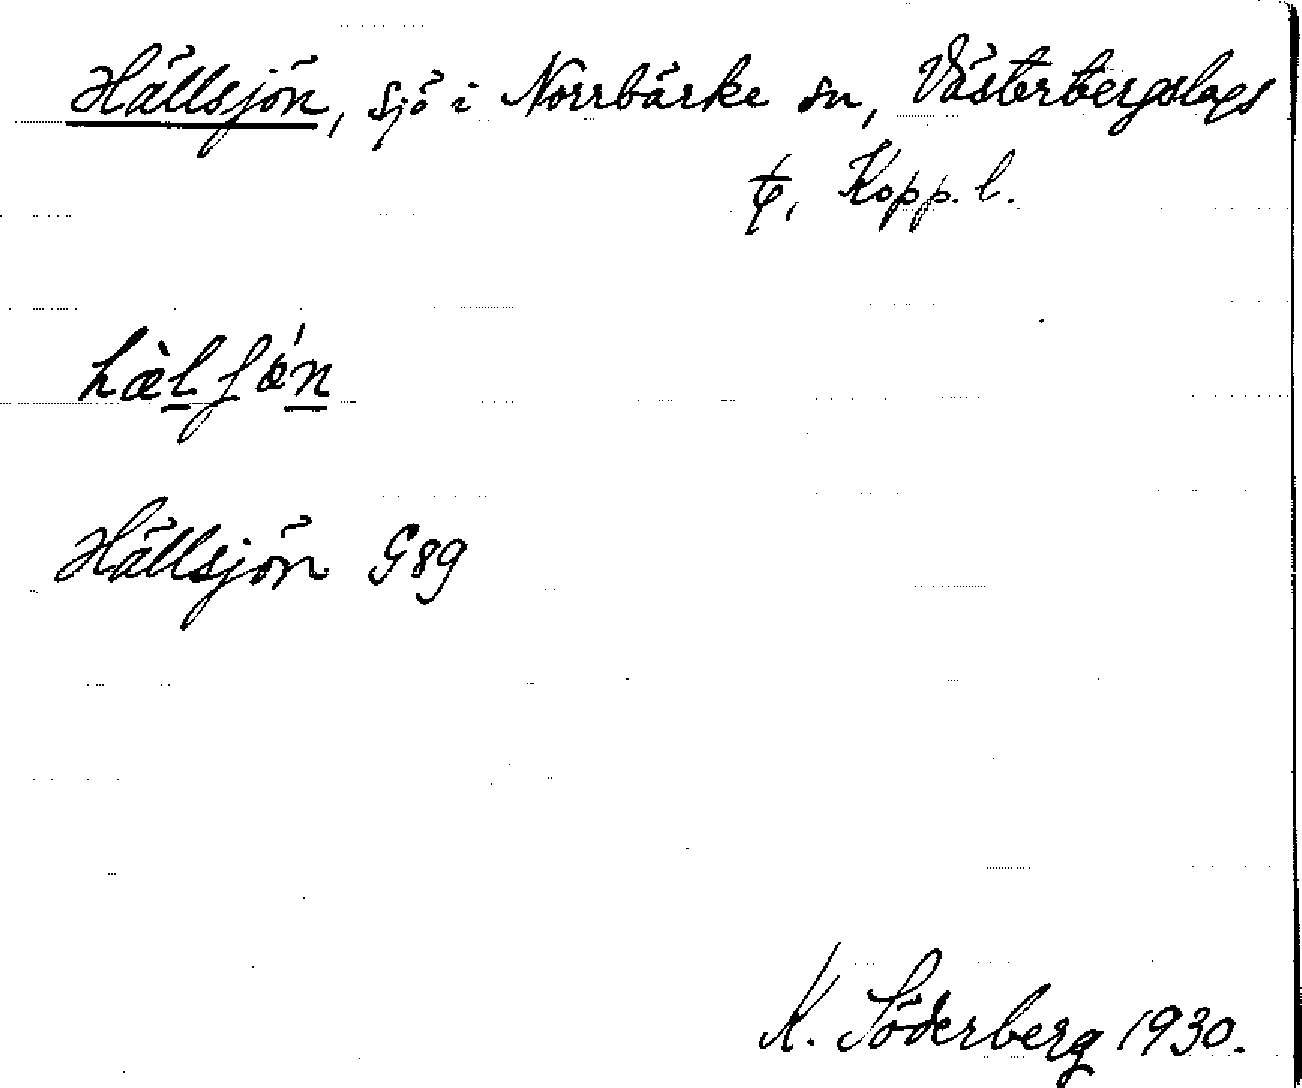 Hällsjön, sjö i Norrbärke sn, Västerbergslags
Kopp. l.
Hällsjön G89
K. Söderberg 1930.